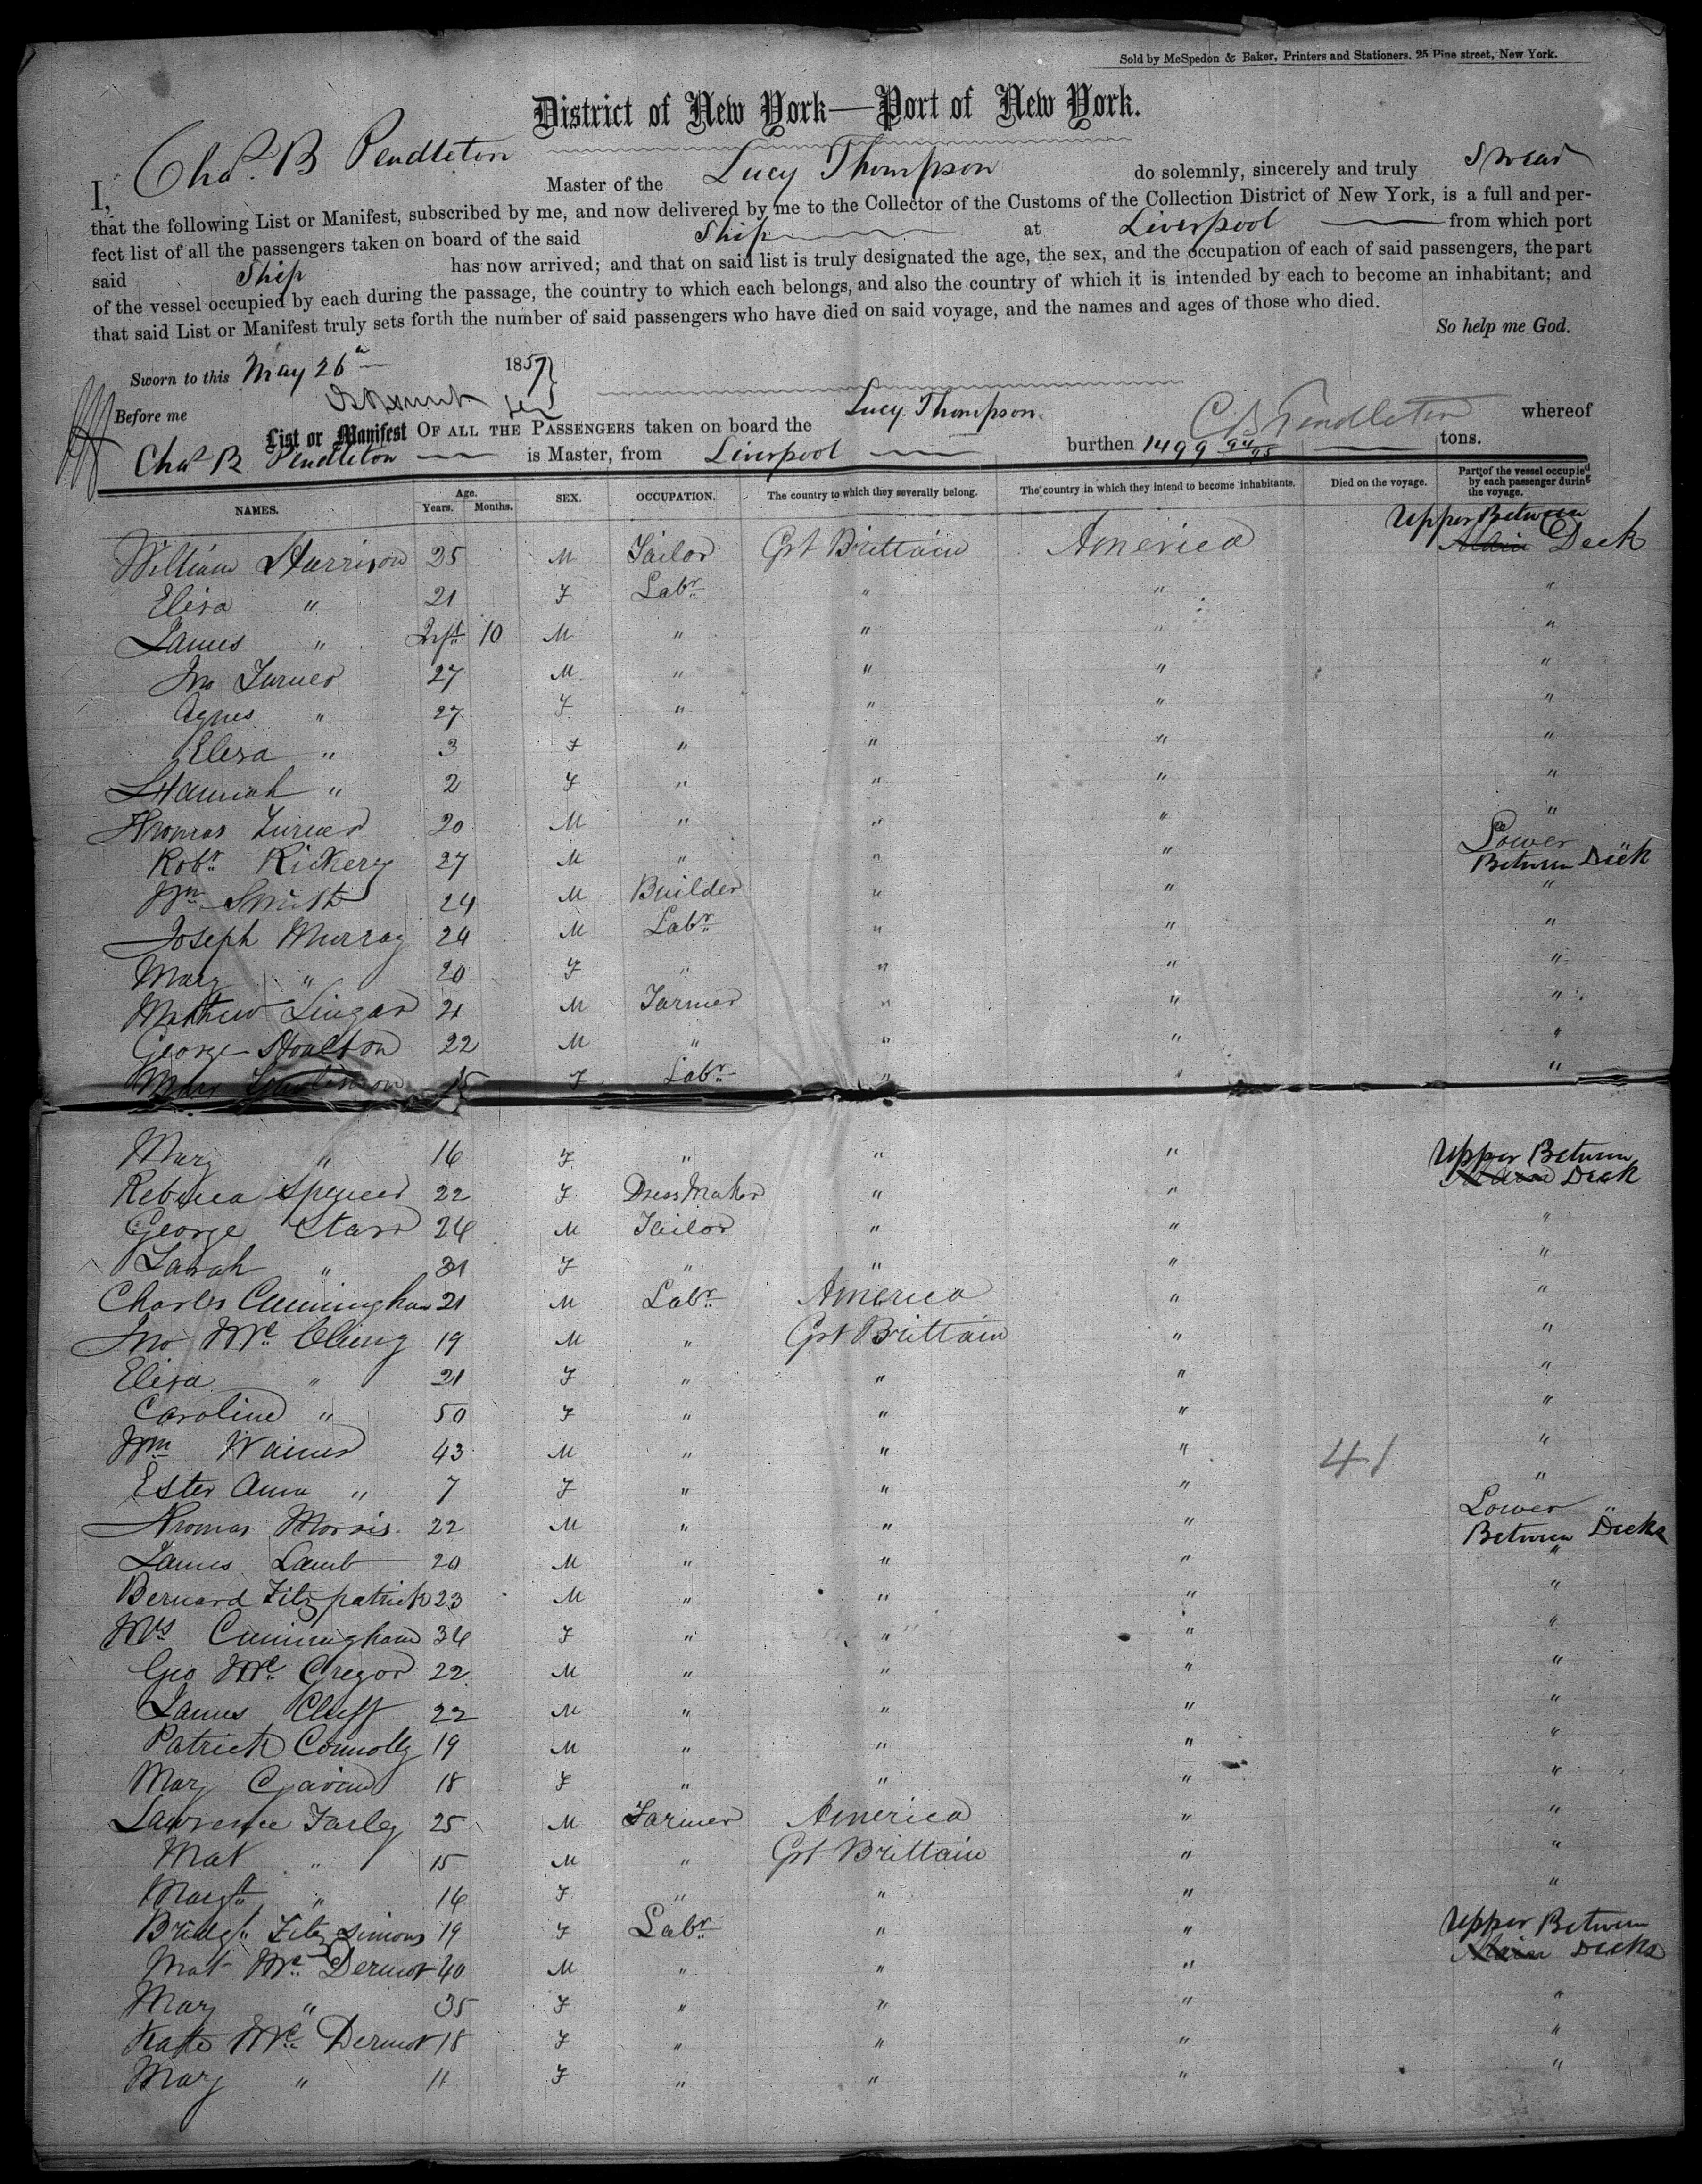 Sold by McSpedon & Baker, Printers and Stationers. 25 Pine street, New York.
District of New York—Port of New York.
I, Chas. B Pendleton Master of the Lucy Thompson do solemnly, sincerely and truly Swear
that the following List or Manifest, subscribed by me, and now delivered by me to the Collector of the Customs of the Collection District of New York, is a full and per-
fect list of all the passengers taken on board of the said Ship at Liverpool from which port
said Ship has now arrived; and that on said list is truly designated the age, the sex, and the occupation of each of said passengers, the part
of the vessel occupied by each during the passage, the country to which each belongs, and also the country of which it is intended by each to become an inhabitant; and
that said List or Manifest truly sets forth the number of said passengers who have died on said voyage, and the names and ages of those who died.
So help me God.
Sworn to this May 26 1857
Before me
C B Pendleton
List or Manifest OF ALL THE PASSENGERS taken on board the Lucy Thompson whereof
Chas B Pendleton is Master, from Liverpool burthen 1499 94/95 tons.
NAMES. Age. Years. Months. SEX. OCCUPATION. The country to which they severally belong. The country in which they intend to become inhabitants. Died on the voyage. Part of the vessel occupied by each passenger during the voyage.
William Harrison 25 M Tailor Grt Brittain America Upper Between Deck
Eliza " 21 F Labr " " "
James " 10 M " " " "
Jno Turner 27 M " " " "
Agnes " 27 F " " " "
Eliza " 3 F " " " "
Hannah " 2 F " " " "
Thomas Turner 20 M " " " "
Robt Rickery 27 M " " " Lower Between Deck
Wm Smith 24 M Builder " " "
Joseph Murray 24 M Labr " " "
Mary " 20 F " " " "
Mathew Lingar 21 M Farmer " " "
George Houlton 22 M " " " "
Mary 15 F Labr " " "
Mary " 16 F " " " Upper Between Deck
Rebecca Spencer 22 F Dress Maker " " "
George Starr 24 M Tailor " " "
Sarah " 31 F " " " "
Charles Cunningham 21 M Labr America " "
Jno Mc Clung 19 M " Grt Brittain " "
Eliza " 21 F " " " "
Caroline " 50 F " " " "
Wm Waines 43 M " " " 41 "
Ester Ann " 7 F " " " "
Thomas Morris 22 M " " " Lower Between Decks
James Lamb 20 M " " " "
Bernard Fitzpatrick 23 M " " " "
Mrs Cunningham 34 F " " " "
Geo Mc Gregor 22 M " " " "
James Cluff 22 M " " " "
Patrick Connolly 19 M " " " "
Mary Gavin 18 F " " " "
Lawrence Farley 25 M Farmer America " "
Mat " 15 M " Grt Brittain " "
Margt " 16 F " " " "
Bridgt Fitzsimons 19 F Labr " " Upper Between Decks
Mat Mc Dermot 40 M " " " "
Mary " 35 F " " " "
Kate Mc Dermot 18 F " " " "
Mary " 11 F " " " "